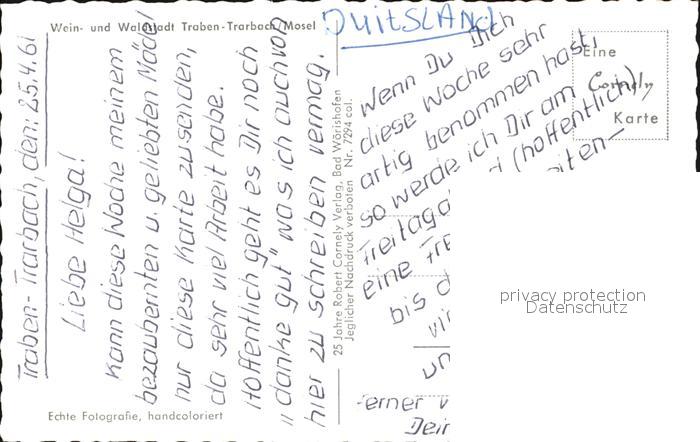 Wein- und Waldstadt Traben-Trarbach/Mosel
DUITSLAND
Traben-Trarbach, den: 25.4.61
Liebe Helga!
Kann diese Woche meinem
bezaubernten u. geliebten Mädel
nur diese Karte zusenden,
da sehr viel Arbeit habe.
Hoffentlich geht es Dir noch
„danke gut" was ich auch von
hier zu schreiben vermag.
25 Jahre Robert Cornely Verlag, Bad Wörishofen
Jeglicher Nachdruck verboten Nr. 7294 col.
Wenn Du Dich
diese Woche sehr
artig benommen hast,
so werde ich Dir am
Freitag (hoffentlich)
eine
bis
un
Dein
Eine
Cornely
Karte
privacy protection
Datenschutz
Echte Fotografie, handcoloriert